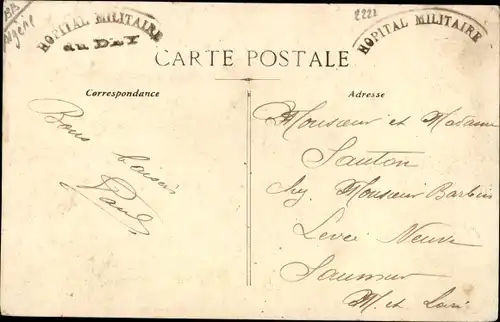 HOPITAL MILITAIRE
du DEY
2221
HOPITAL MILITAIRE
Algérie
CARTE POSTALE
Correspondance
Bons
baisers
Paul
Adresse
Monsieur et Madame
Sauton
chez Monsieur Barbin
Levée Neuve
Saumur
M. et Loire